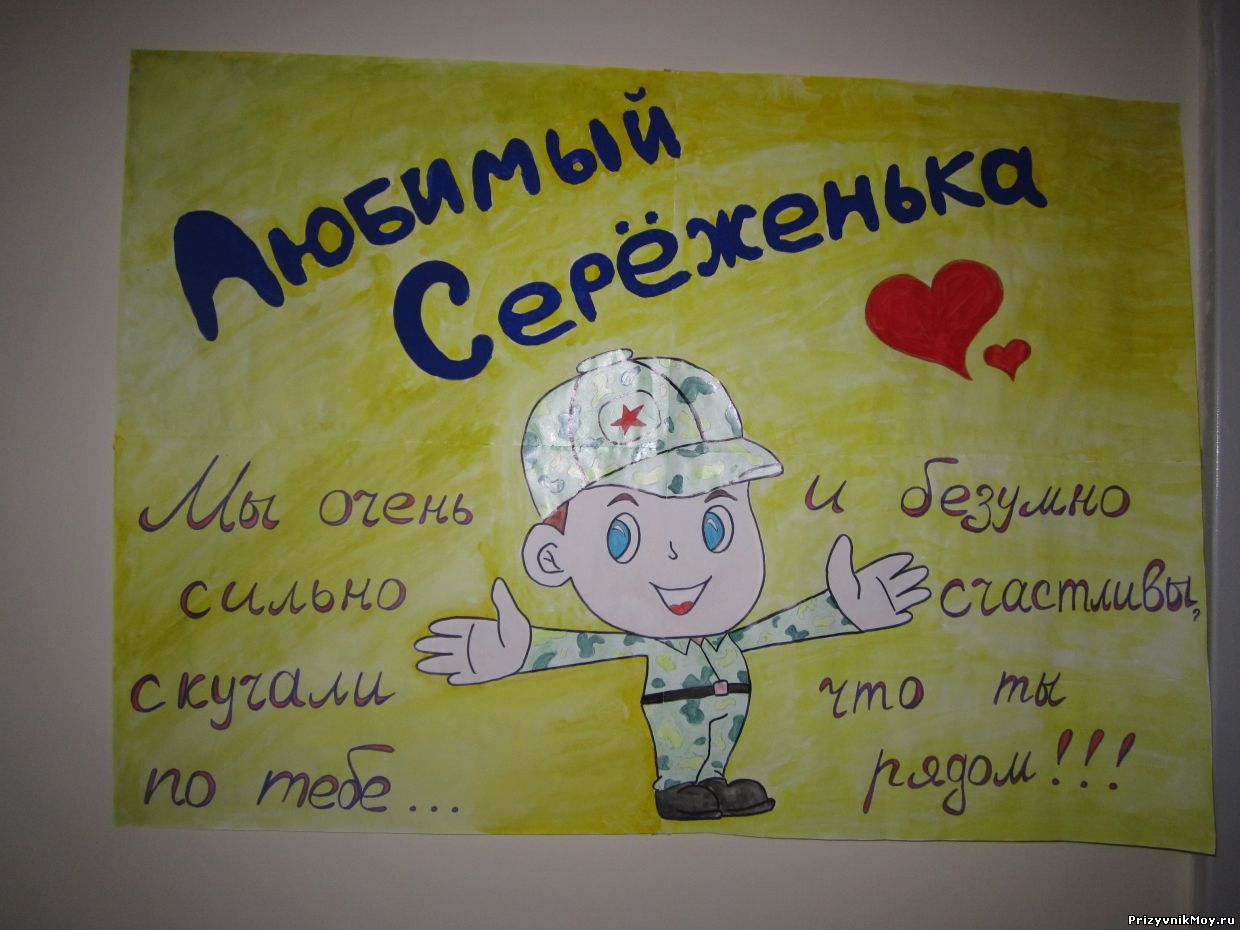 Любимый
Серёженька
Мы очень
сильно
скучали
по тебе...
и безумно
счастливы,
что ты
рядом!!!
PrizyvnikMoy.ru